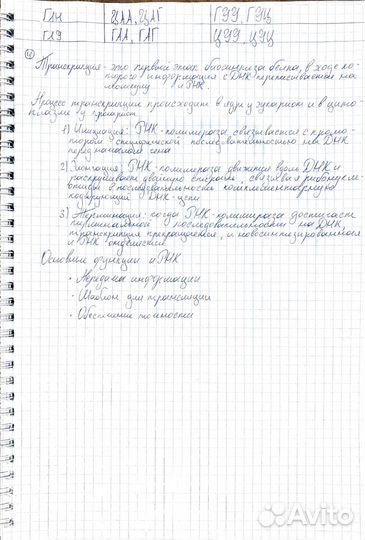 Глн ЦАА, ЦАГ ГЭЭ, ГЭЦ
Глэ ГАА, ГАГ ЦЭЭ ЦЭЦ
4) Транскрипция - это первый этап биосинтеза белка, в ходе ко-
торого информация с ДНК переписывается на
молекулу иРНК.
Процесс транскрипции происходит в ядре у эукариот и в цито-
плазме у прокариот
1) Инициация: РНК-полимераза связывается с промо-
тором специфической последовательностью на ДНК
перед началом гена
2) Элонгация: РНК-полимераза движется вдоль ДНК и
раскручивает двойную спираль, связывая рибонукле-
отиды в последовательность комплементарную
кодирующей ДНК-цепи
3) Терминация: когда РНК-полимераза достигает
терминальной последовательности на ДНК,
транскрипция прекращается, и новосинтезированная
иРНК
Основные функции иРНК
• Передача информации
• Шаблон для трансляции
• Обеспечение точности
Avito